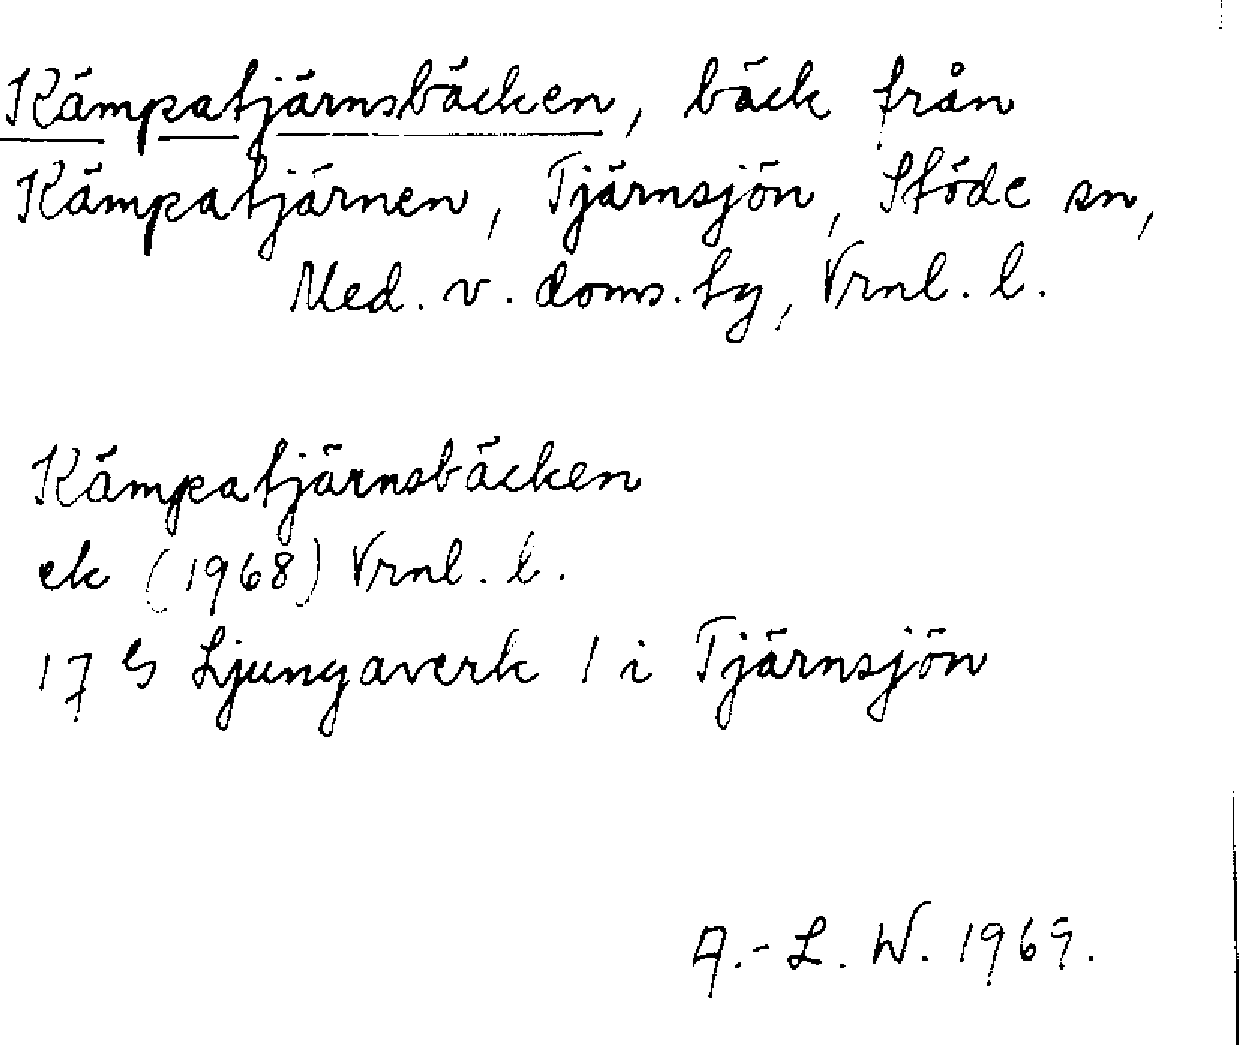 Kämpatjärnsbäcken, bäck från
Kämpatjärnen, Tjärnsjön, Stöde sn,
Med. v. doms. tg, Vrnl. l.
Kämpatjärnsbäcken
ek (1968) Vrnl. l.
17 G Ljungaverk / i Tjärnsjön
A.-L. W. 1969.